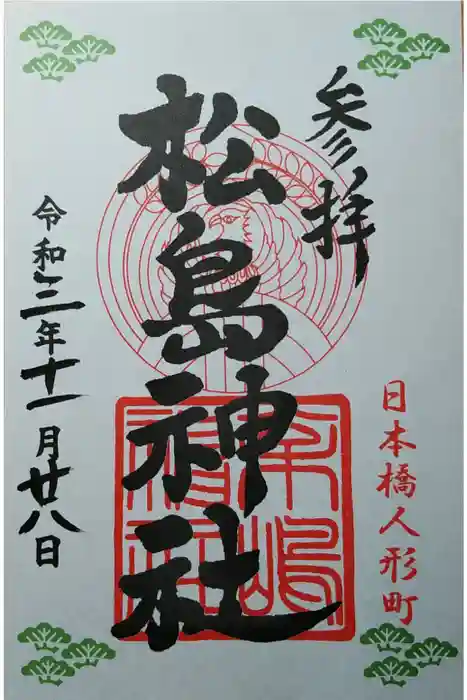 参拝
日本橋人形町
松島神社
令和三年十一月廿八日